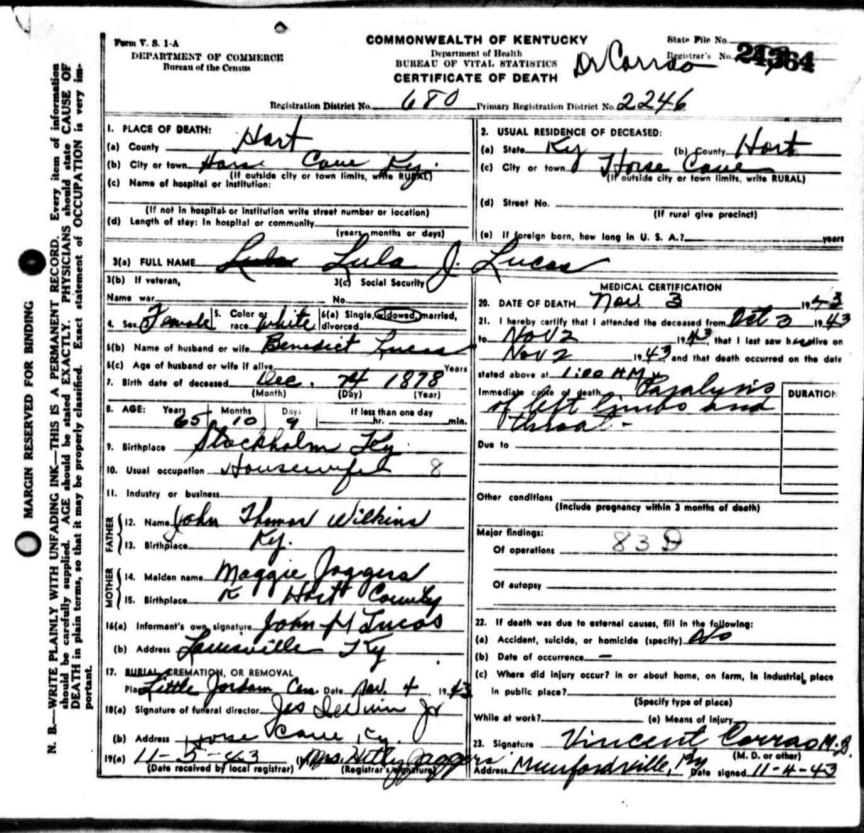 Form V. S. 1-A
DEPARTMENT OF COMMERCE
Bureau of the Census
COMMONWEALTH OF KENTUCKY
Department of Health
BUREAU OF VITAL STATISTICS
CERTIFICATE OF DEATH
Dr Corrao
State File No.
Registrar's No.
Registration District No. 680 Primary Registration District No. 2246
MARGIN RESERVED FOR BINDING
N. B.—WRITE PLAINLY WITH UNFADING INK—THIS IS A PERMANENT RECORD. Every item of information
should be carefully supplied. AGE should be stated EXACTLY. PHYSICIANS should state CAUSE OF
DEATH in plain terms, so that it may be properly classified. Exact statement of OCCUPATION is very im-
portant.
1. PLACE OF DEATH:
(a) County Hart
(b) City or town Horse Cave Ky.
(If outside city or town limits, write RURAL)
(c) Name of hospital or institution:
(If not in hospital or institution write street number or location)
(d) Length of stay: In hospital or community
(years, months or days)
2. USUAL RESIDENCE OF DECEASED:
(a) State Ky (b) County Hart
(c) City or town Horse Cave
(If outside city or town limits, write RURAL)
(d) Street No.
(If rural give precinct)
(e) If foreign born, how long in U. S. A.? years
3(a) FULL NAME Lula J. Lucas
3(b) If veteran,
Name war
3(c) Social Security
No.
4. Sex Female 5. Color or race White 6(a) Single, widowed, married, divorced
6(b) Name of husband or wife Benedict Lucas
6(c) Age of husband or wife if alive Years
7. Birth date of deceased Dec. 1878
(Month) (Day) (Year)
8. AGE: Years Months Days If less than one day
65 10 9 hr. min.
9. Birthplace Stockholm Ky.
10. Usual occupation Housewife 8
11. Industry or business
FATHER
12. Name John Thomas Wilkins
13. Birthplace Ky.
MOTHER
14. Maiden name Maggie Jaggers
15. Birthplace Hart County
16(a) Informant's own signature John H Lucas
(b) Address Louisville Ky
17. BURIAL, CREMATION, OR REMOVAL
Place Little Jordan Cem. Date Nov. 4, 1943
18(a) Signature of funeral director
(b) Address Horse Cave Ky.
19(a) 11-5-43 Mrs. Jaggers
(Date received by local registrar) (Registrar's signature)
MEDICAL CERTIFICATION
20. DATE OF DEATH Nov. 3 1943
21. I hereby certify that I attended the deceased from Oct 3, 1943
to Nov 2, 1943, that I last saw her alive on
Nov 2, 1943 and that death occurred on the date
stated above at 1:00 AM
Immediate cause of death Paralysis
of left limbs and
throat -
DURATION
Due to
Other conditions
(Include pregnancy within 3 months of death)
Major findings:
Of operations 83D
Of autopsy
22. If death was due to external causes, fill in the following:
(a) Accident, suicide, or homicide (specify) No
(b) Date of occurrence —
(c) Where did injury occur? in or about home, on farm, in industrial place
in public place?
(Specify type of place)
While at work? (e) Means of injury
23. Signature Vincent Corrao M.D.
(M. D. or other)
Address Munfordville, Ky Date signed 11-4-43